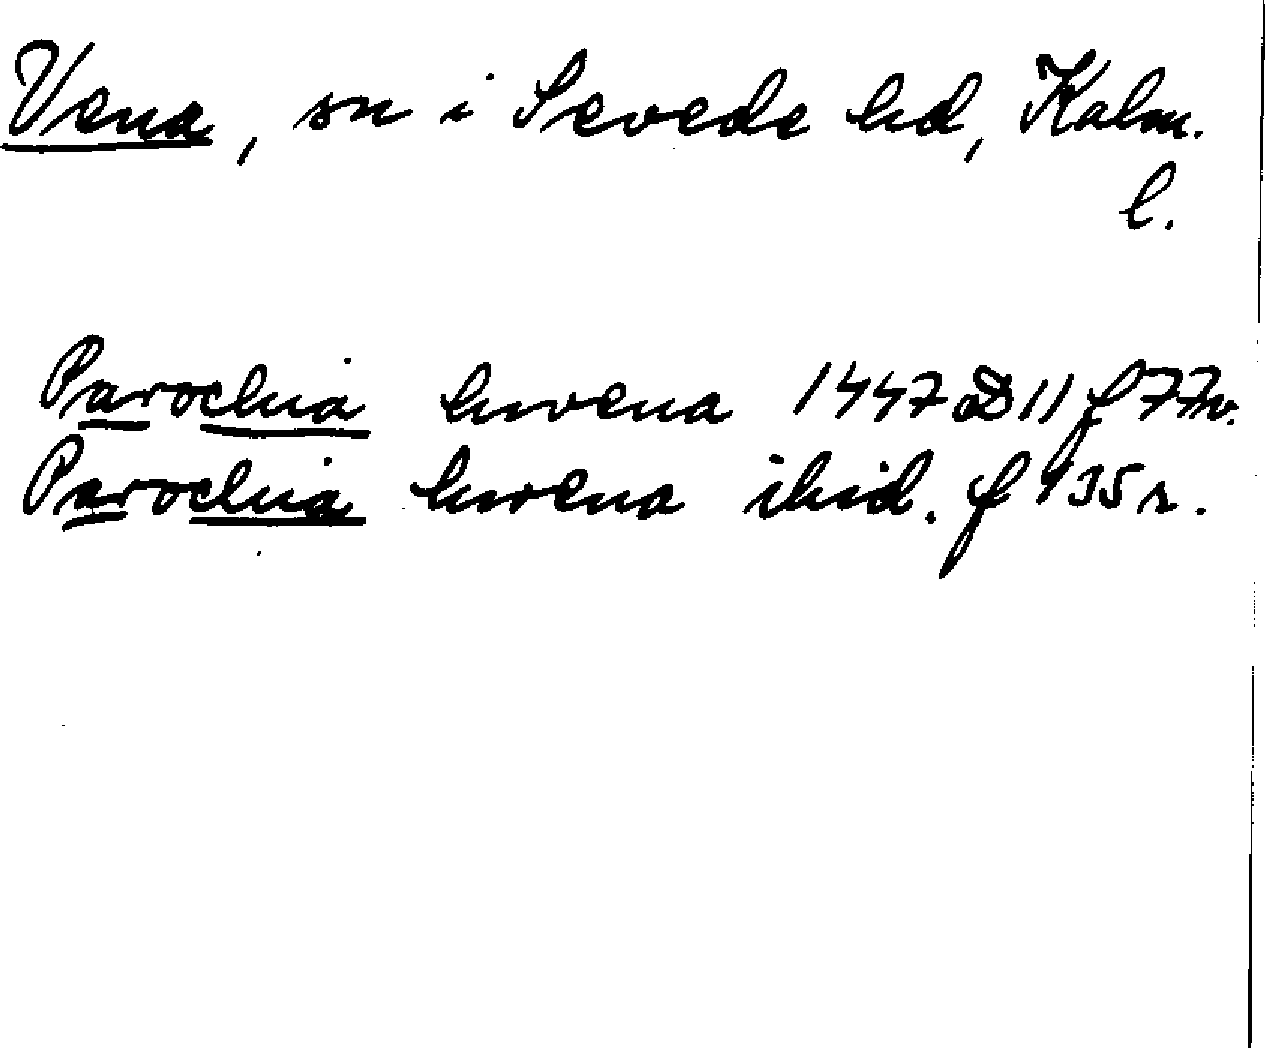 Vena, sn i Sevede hd, Kalm.
l.
Parochia hwena 1447 D 11 f 77v.
Parochia hwena ibid. f 135 r.